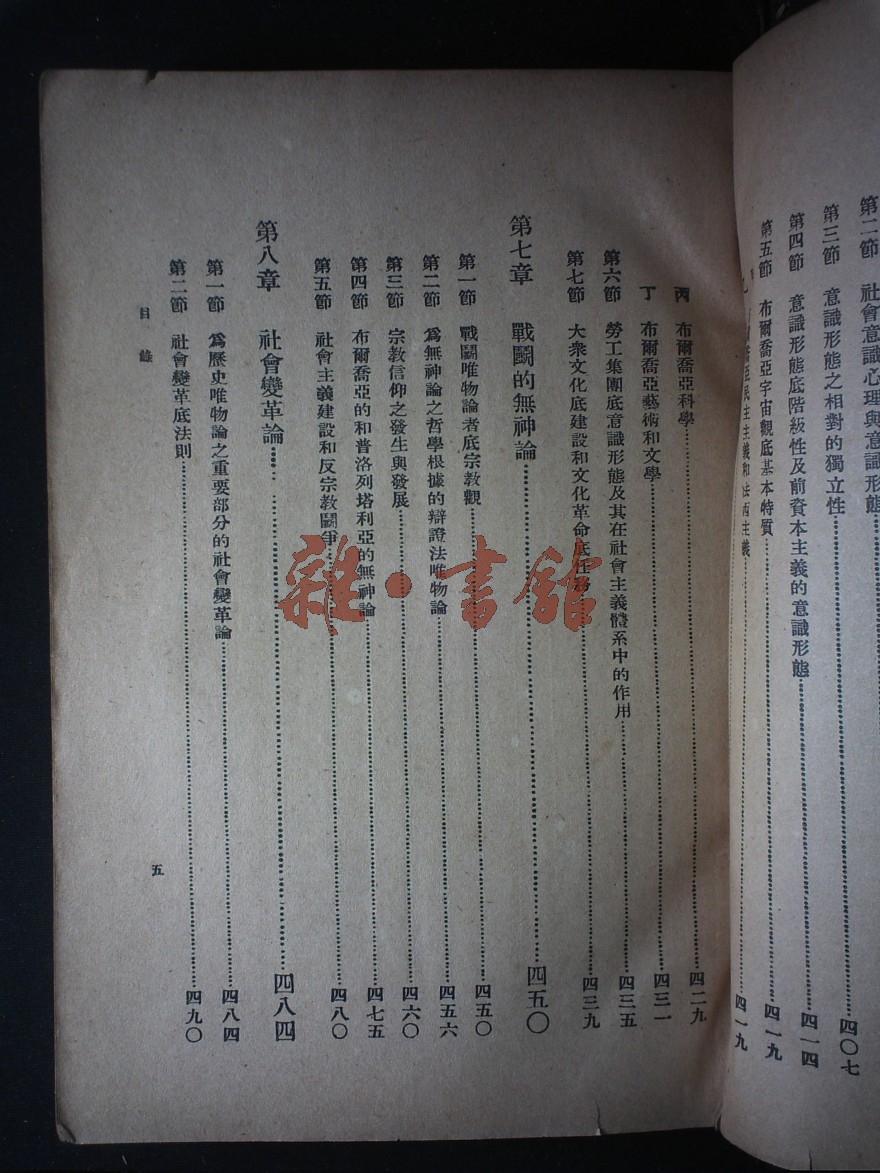 第二節 社會意識心理與意識形態
第三節 意識形態之相對的獨立性……四〇七
第四節 意識形態底階級性及前資本主義的意識形態……四一四
第五節 布爾喬亞宇宙觀底基本特質……四一九
民主主義和法西主義……四一九
丙 布爾喬亞科學……四二九
丁 布爾喬亞藝術和文學……四三一
第六節 勞工集團底意識形態及其在社會主義體系中的作用……四三五
第七節 大衆文化底建設和文化革命底任務……四三九
第七章 戰鬭的無神論……四五〇
第一節 戰鬭唯物論者底宗教觀……四五〇
第二節 爲無神論之哲學根據的辯證法唯物論……四五六
第三節 宗教信仰之發生與發展……四六〇
第四節 布爾喬亞的和普洛列塔利亞的無神論……四七五
第五節 社會主義建設和反宗教鬭爭……四八〇
第八章 社會變革論……四八四
第一節 爲歷史唯物論之重要部分的社會變革論……四八四
第二節 社會變革底法則……四九〇
目錄
五
雜·書館